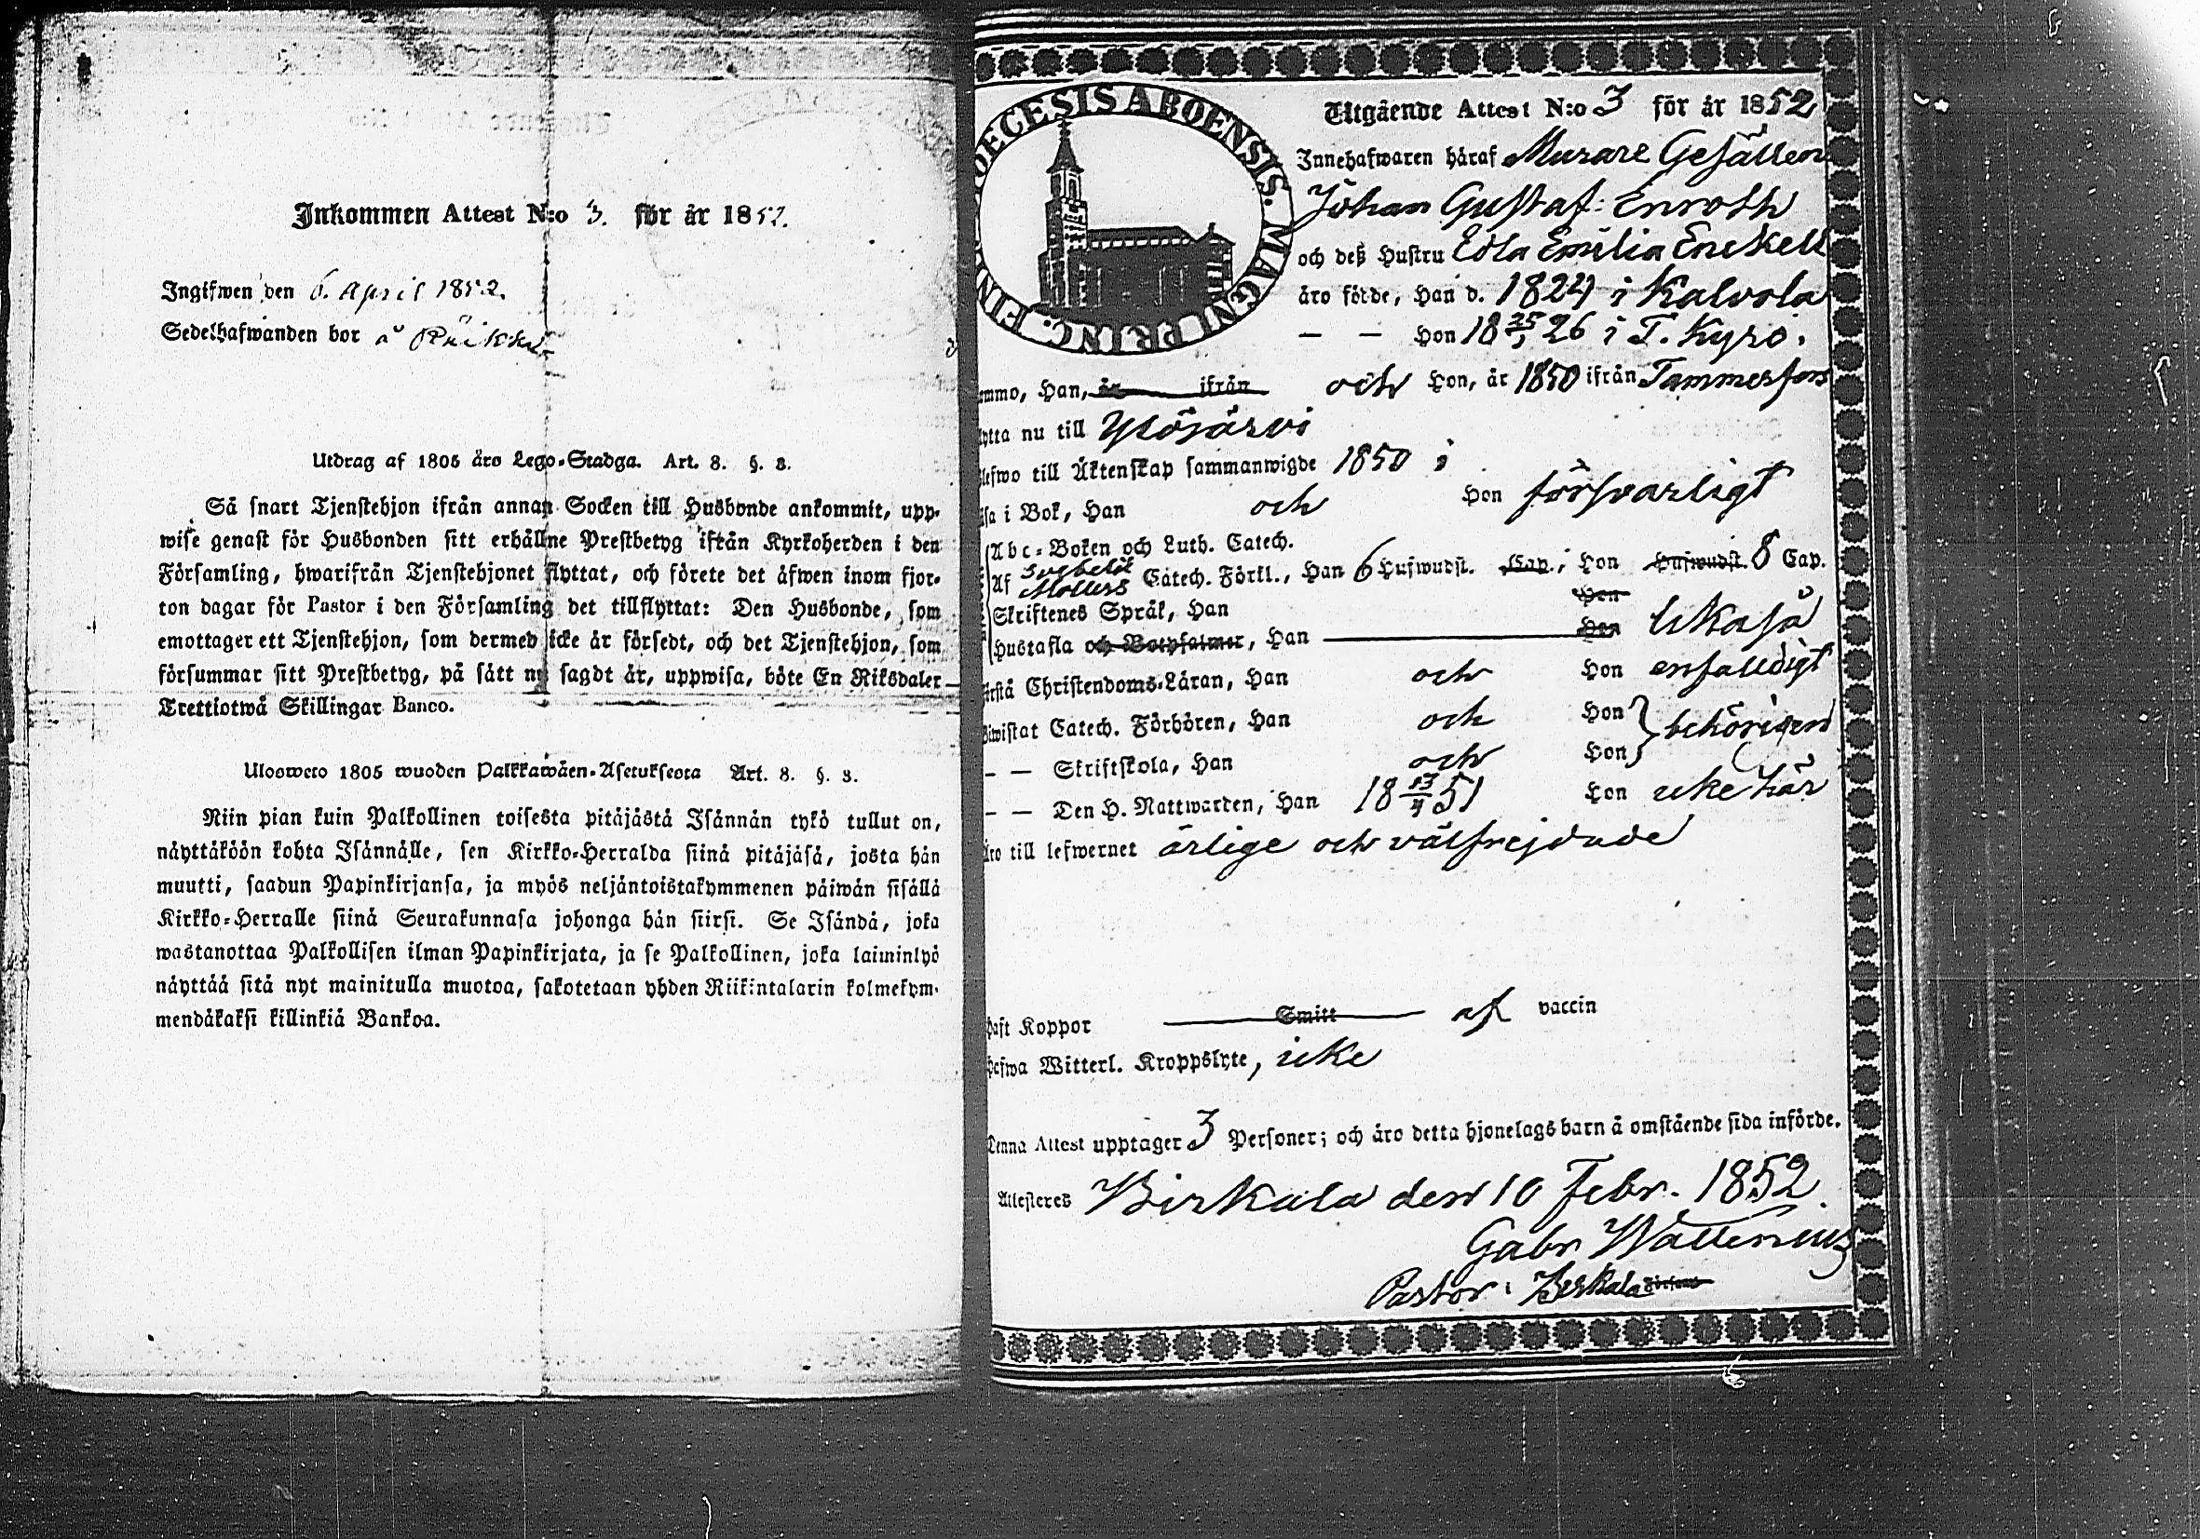 Inkommen Attest N:o 3. för år 1852.
Ingifwen den 6. April 1852.
Sedelhafwanden bor å
Utdrag af 1805 års Lego-Stadga. Art. 8. §. 8.
Så snart Tjenstehjon ifrån annan Socken till Husbonde ankommit, upp-
wise genast för Husbonden sitt erhållne Prestbetyg ifrån Kyrkoherden i den
Församling, hwarifrån Tjenstehjonet flyttat, och förete det äfwen inom fjor-
ton dagar för Pastor i den Församling det tillflyttat: Den Husbonde, som
emottager ett Tjenstehjon, som dermed icke är försedt, och det Tjenstehjon, som
försummar sitt Prestbetyg, på sätt nu sagdt är, uppwisa, böte En Riksdaler
Trettiotwå Skillingar Banco.
Ulosweto 1805 wuoden Palkkawäen-Asetuksesta Art. 8. §. 8.
Niin pian kuin Palkollinen toisesta pitäjästä Isännän tykö tullut on,
näyttäköön kohta Isännälle, sen Kirkko-Herralda siinä pitäjäsä, josta hän
muutti, saadun Papinkirjansa, ja myös neljäntoistakymmenen päiwän sisällä
Kirkko-Herralle siinä Seurakunnasa johonga hän siirsi. Se Isändä, joka
wastanottaa Palkollisen ilman Papinkirjata, ja se Palkollinen, joka laiminlyö
näyttää sitä nyt mainitulla muotoa, sakotetaan yhden Riikintalarin kolmekym-
mendäkaksi killinkiä Bankoa.
DIOECESIS ABOENSIS. MAGN. PRINC. FIN
Utgående Attest N:o 3 för år 1852
Innehafwaren häraf Murare Gesällen
Johan Gustaf Enroth
och deß Hustru Edla Emilia Enekell
äro födde, Han d. 1824 i Kalvola
— — Hon 18 25/5 26 i T. Kyro.
ommo, Han, år ifrån och Hon, år 1850 ifrån Tammerfors
lytta nu till Ylöjärvi
lefwo till Äktenskap sammanwigde 1850
äsa i Bok, Han och Hon försvarligt
Abc-Boken och Luth. Catech.
Svebelii
Af Möllers Catech. Förkl., Han 6 Hufwudst. Cap., Hon Hufwudst. 8 Cap.
Skriftenes Språk, Han Hon
Hustafla och Botpsalmer, Han Hon likaså
örstå Christendoms-Läran, Han och Hon enfalldigt
iwistat Catech. Förhören, Han och Hon behörigen
— — Skriftskola, Han och Hon
— — Den H. Nattwarden, Han 18 13/4 51 Hon icke här
äro till lefwernet ärlige och välfrejdade
haft Koppor Smitt af vaccin
hefwa Witterl. Kroppslyte, icke
Denna Attest upptager 3 Personer; och äro detta hjonelags barn å omstående sida införde.
Attesteres Birkala den 10 Febr. 1852
Gabr. Wallenius
Pastor i Birkala